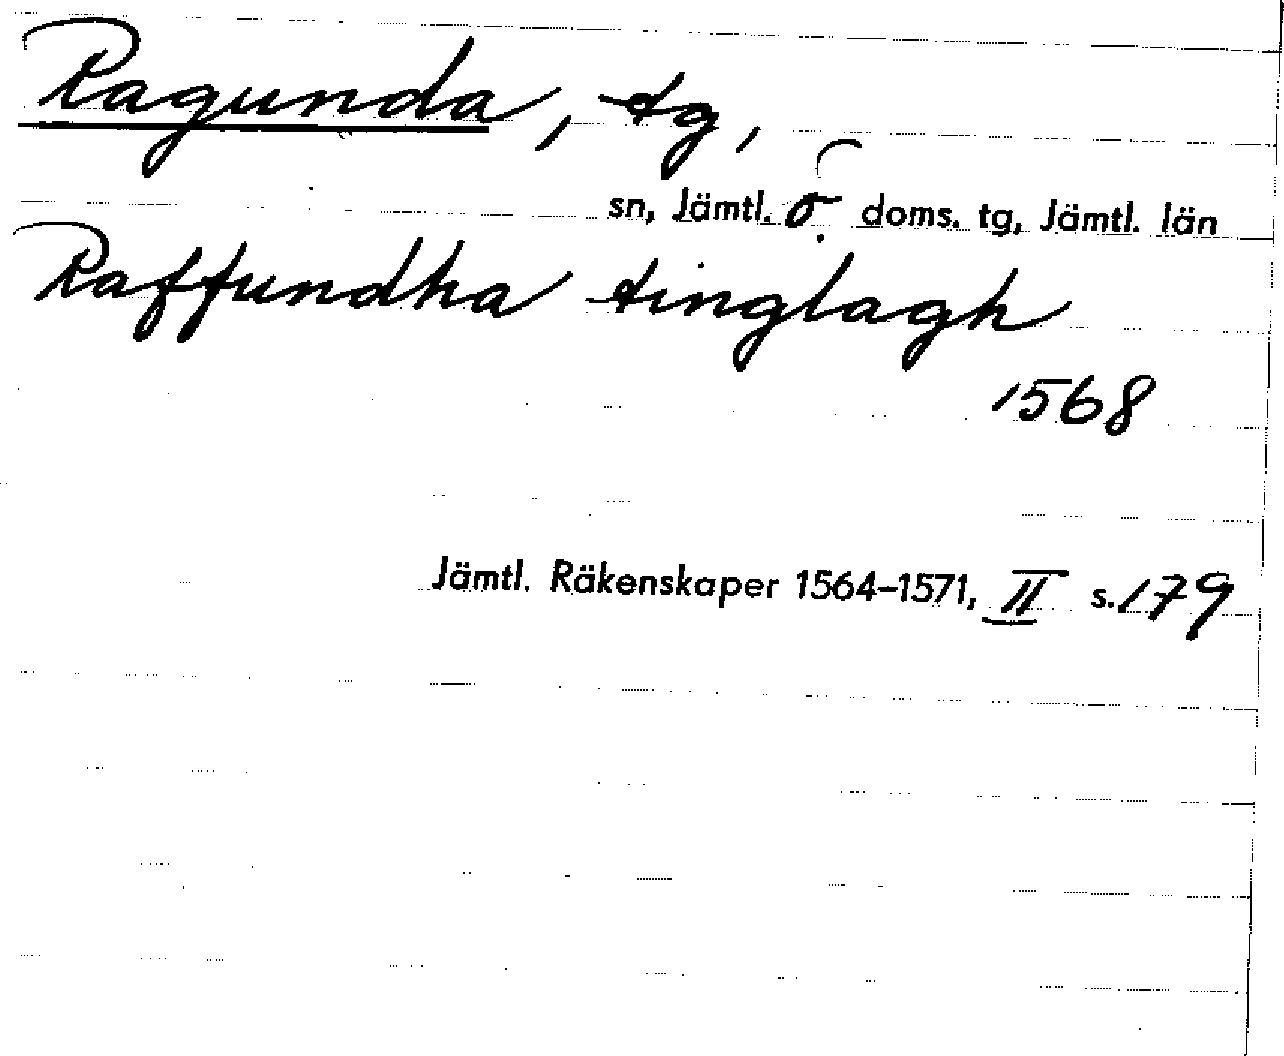 Ragunda, tg,
sn, Jämtl. ö. doms. tg, Jämtl. län
Raffundha tinglagh
1568
Jämtl. Räkenskaper 1564–1571, II s. 179